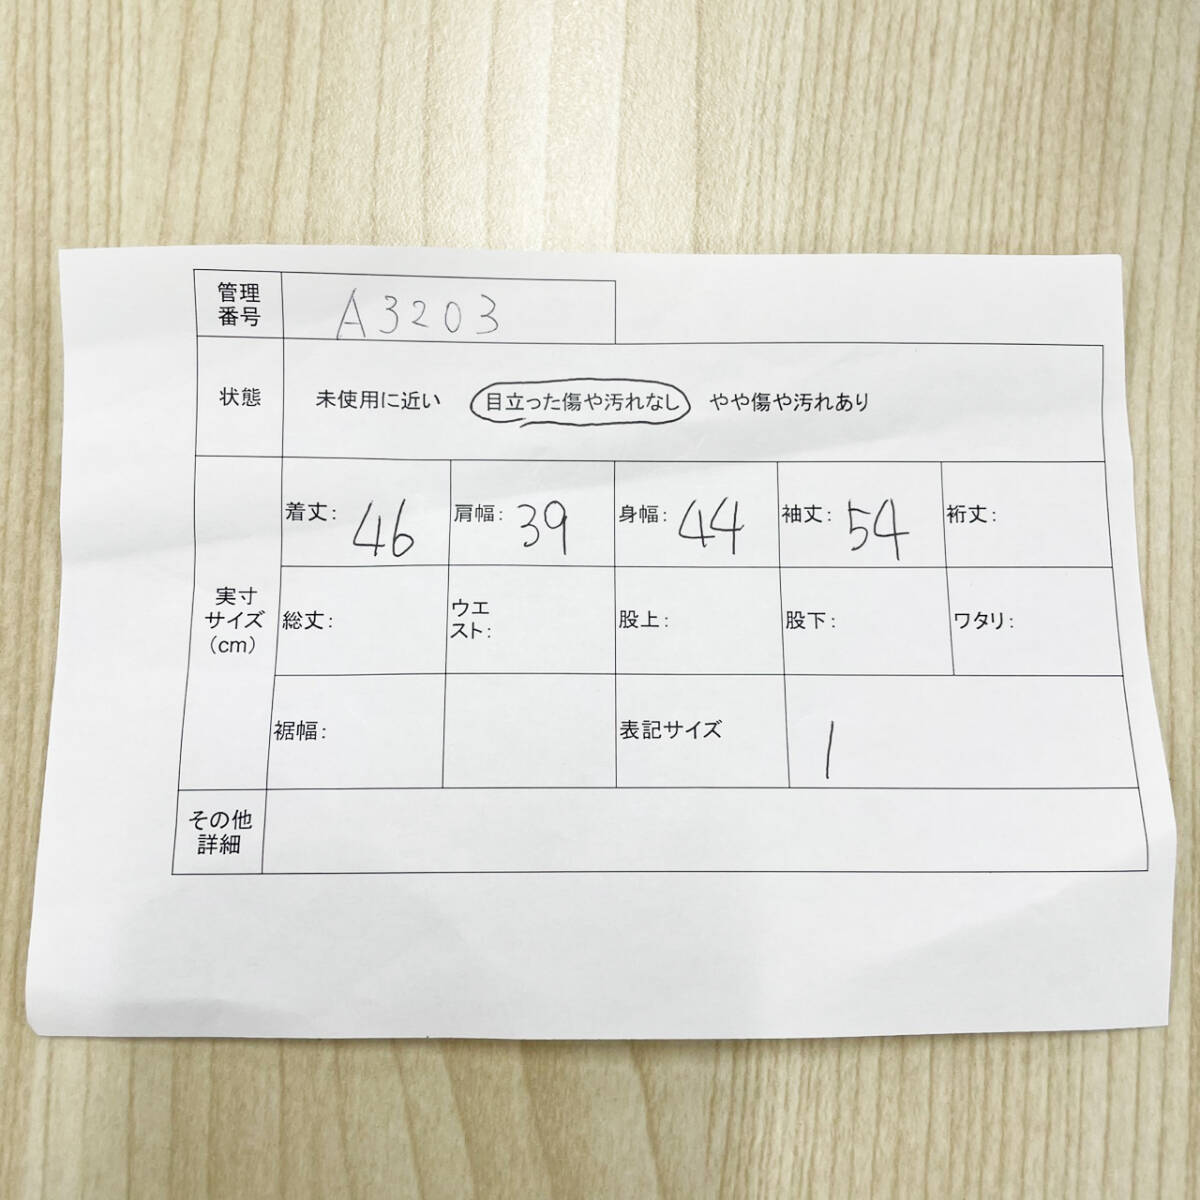 管理
番号
A3203
状態
未使用に近い 目立った傷や汚れなし やや傷や汚れあり
実寸
サイズ
(cm)
着丈: 46 肩幅: 39 身幅: 44 袖丈: 54 裄丈:
総丈: ウエ
スト: 股上: 股下: ワタリ:
裾幅: 表記サイズ 1
その他
詳細